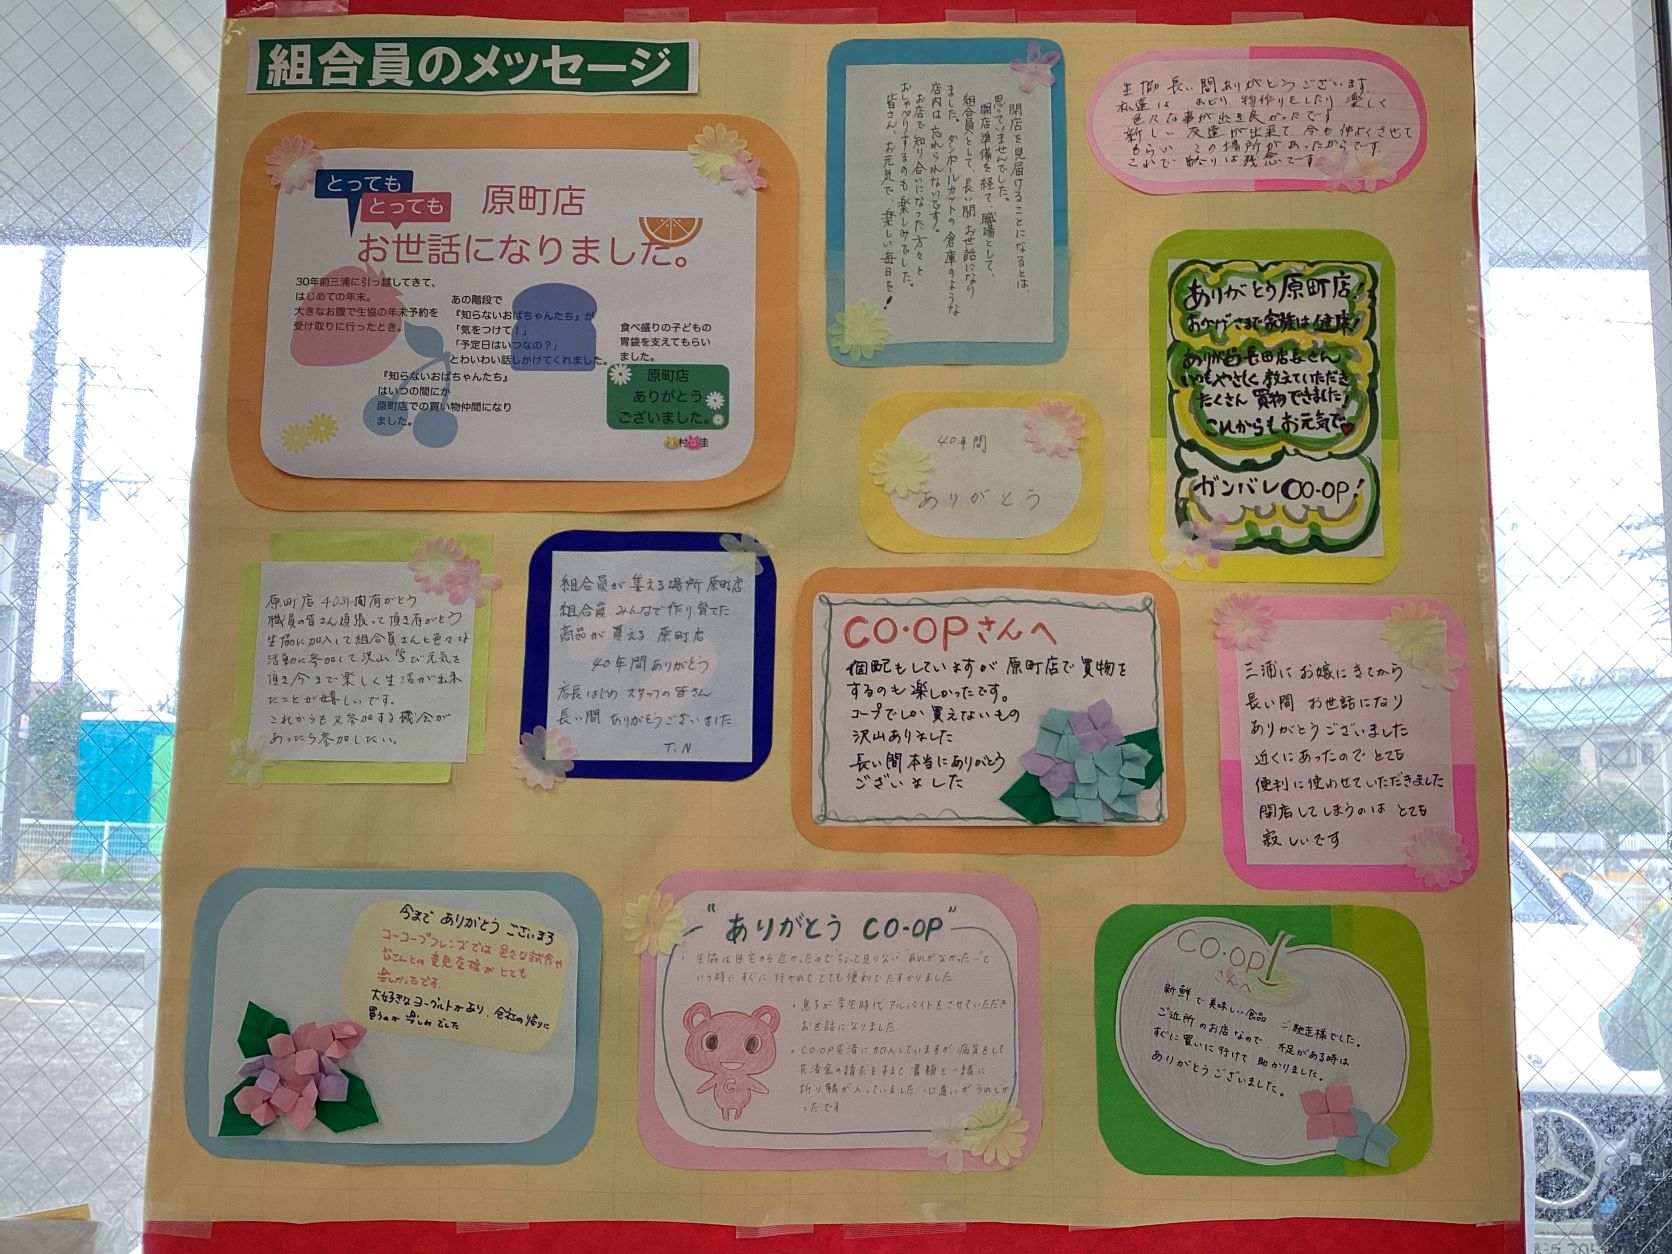 組合員のメッセージ
とっても
とっても
原町店
お世話になりました。
30年前三浦に引っ越してきて、
はじめての年末。
大きなお腹で生協の年末予約を
受け取りに行ったとき。
あの階段で
『知らないおばちゃんたち』が
「気をつけて！」
「予定日はいつなの？」
とわいわい話しかけてくれました。
『知らないおばちゃんたち』
はいつの間にか
原町店での買い物仲間になり
ました。
食べ盛りの子どもの
胃袋を支えてもらい
ました。
原町店
ありがとう
ございました。
村 圭
閉店を見届けることになるとは、
思っていませんでした。
開店準備を経て、職場として、
組合員として、長い間お世話になり
ました。ダンボールカットの倉庫のような
店内は忘れられないです。
お店で知り合いになった方々と
おしゃべりするのも楽しみでした。
皆さん、お元気で、楽しい毎日を！
生協長い間ありがとうございます。
私達は おどり 物作りをしたり 楽しく
色々な事が出き良かったです
新しい 友達が出来て 今も仲よくさせて
もらい この場所があったからです。
これで終りは残念です
ありがとう原町店!
おかげさまで家族は健康!
ありがとう長田店長さん
いつもやさしく教えていただき
たくさん買物できました!
これからもお元気で♥
ガンバレCO-OP!
40年間
ありがとう
原町店 40年間有がとう
職員の皆さん頑張って頂き有がとう
生協に加入して組合員さんと色々な
活動に参加して沢山学び元気を
頂き今まで楽しく生活が出来
たことが嬉しいです。
これからも又参加する機会が
あったら参加したい。
組合員が集える場所 原町店
組合員みんなで作り育てた
商品が買える 原町店
40年間ありがとう
店長はじめ スタッフの皆さん
長い間 ありがとうございました
T.N
CO・OPさんへ
個配もしていますが 原町店で買物を
するのも楽しかったです。
コープでしか買えないもの
沢山ありました
長い間本当にありがとう
ございました
三浦にお嫁にきてから
長い間 お世話になり
ありがとうございました
近くにあったので とても
便利に使わせていただきました
閉店してしまうのは とても
寂しいです
今まで ありがとう ございまろ
コーコープフレンズでは 色々な試食や
皆さんとの意見交換が とても
楽しかったです
大好きなヨーグルトがあり、会社の帰りに
買うのが楽しみでした
"ありがとう CO-OP"
・生協は自宅から近かったので"ちょっと足りない あれがなかった…"と
いう時にすぐに行かれてとても便利でたすかりました
・息子が学生時代アルバイトをさせていただき
お世話になりました
・CO-OP共済に加入していますが 病気をして
共済金の請求をすると書類と一緒に
折り鶴が入っていました 心遣いがうれしか
ったです
C
CO-OP
さんへ
新鮮で美味しい食品 ご馳走様でした。
ご近所のお店なので 不足がある時は
すぐに買いに行けて助かりました。
ありがとうございました。